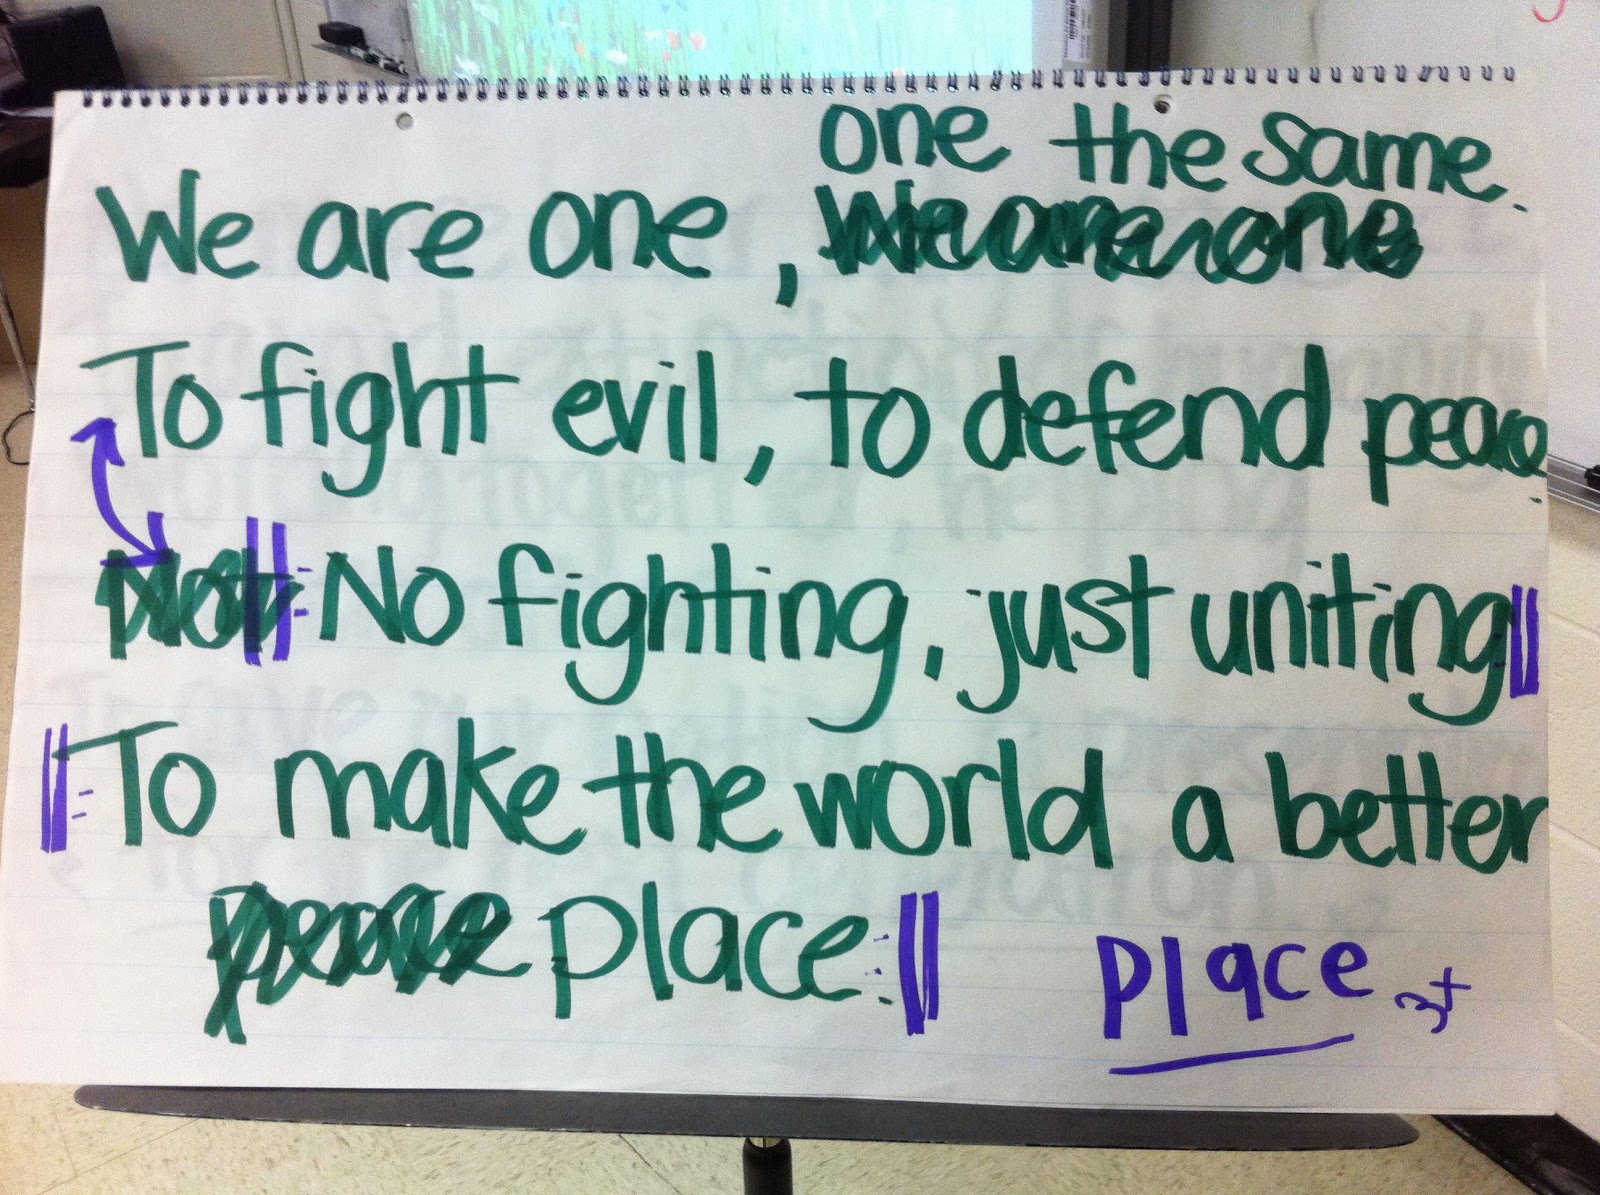 one the same.
We are one, We are one
To fight evil, to defend peace.
Not No fighting, just uniting
To make the world a better
peace place.
place 3x